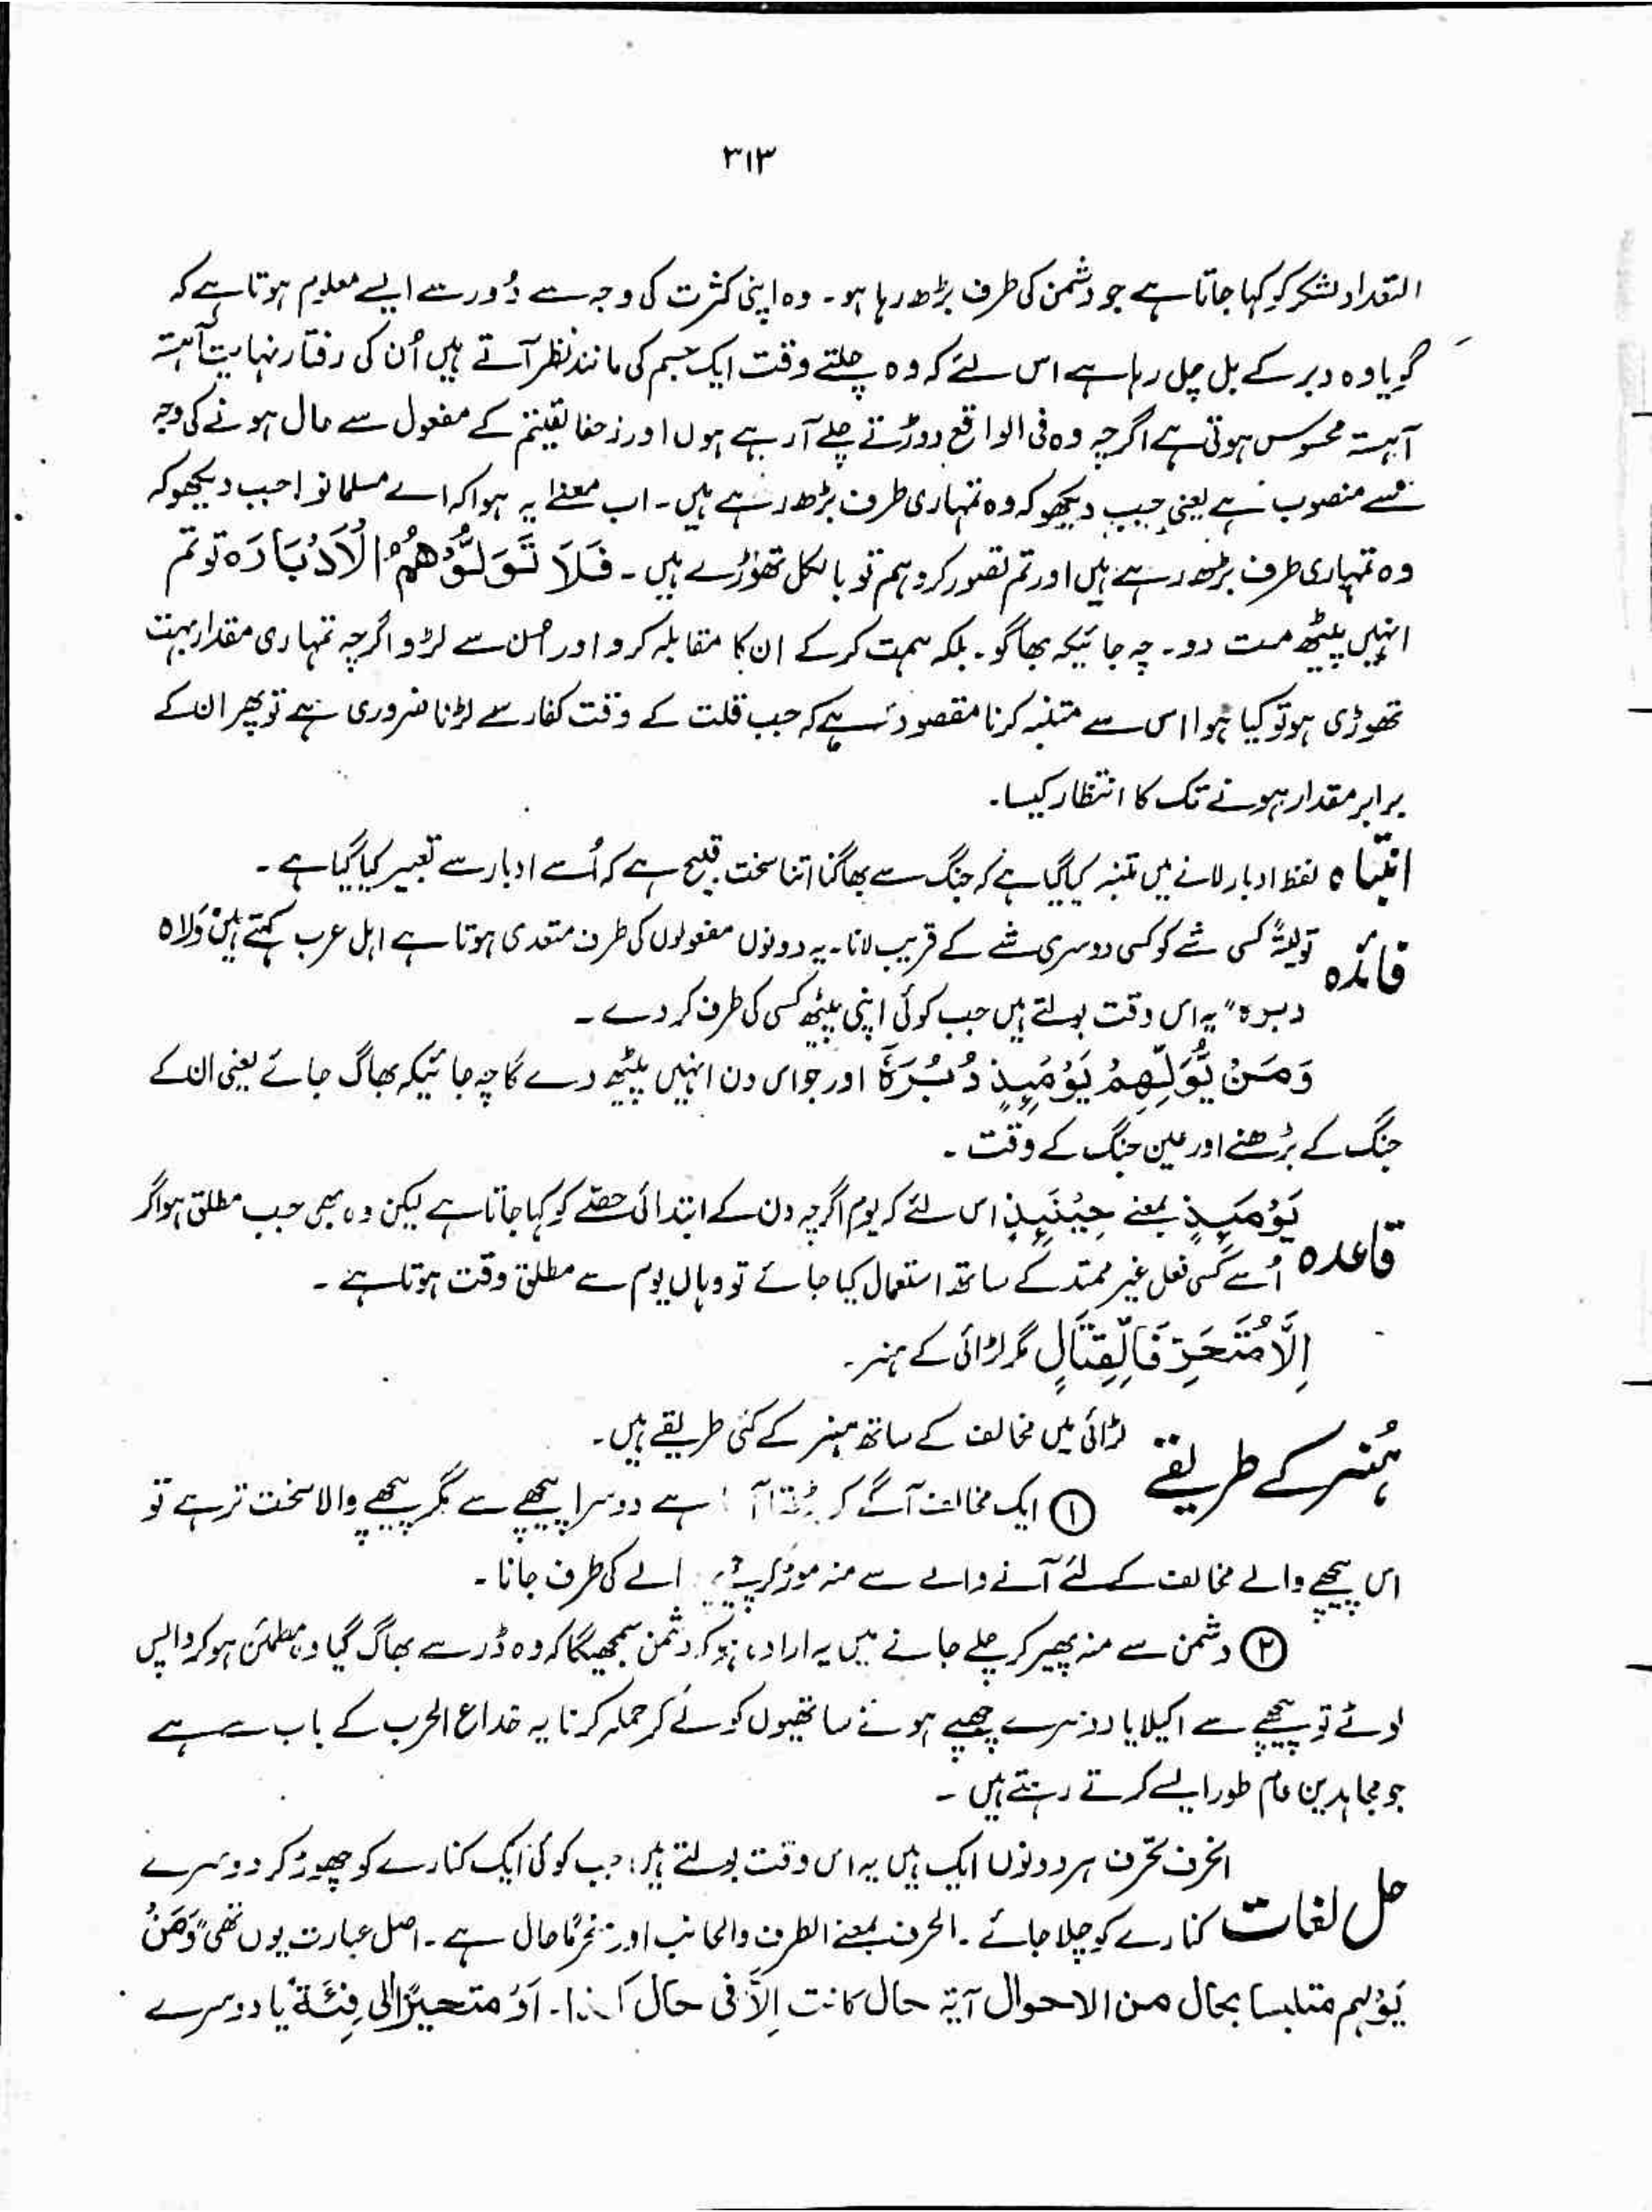 ۳۱۳
التعداد لشکر کو کہا جاتا ہے جو دشمن کی طرف بڑھ رہا ہو۔ وہ اپنی کثرت کی وجہ سے دُور سے ایسے معلوم ہوتا ہے کہ
گویا وہ دبر کے بل چل رہا ہے اس لئے کہ وہ چلتے وقت ایک جسم کی مانند نظر آتے ہیں اُن کی رفتار نہایت آہستہ
آہستہ محسوس ہوتی ہے اگرچہ وہ فی الواقع دوڑتے چلے آ رہے ہوں اور زحفا لقیتم کے مفعول سے حال ہونے کی وجہ
سے منصوب ہے یعنی جب دیکھو کہ وہ تمہاری طرف بڑھ رہے ہیں۔ اب معنے یہ ہوا کہ اے مسلمانو! جب دیکھو کہ
وہ تمہاری طرف بڑھ رہے ہیں اور تم تصور کرو ہم تو بالکل تھوڑے ہیں۔ فَلَا تُوَلُّوْهُمُ الْاَدْبَارَہ تو تم
انہیں پیٹھ مت دو۔ چہ جائیکہ بھاگو۔ بلکہ ہمت کر کے ان کا مقابلہ کرو اور ان سے لڑو اگرچہ تمہاری مقدار بہت
تھوڑی ہو تو کیا ہوا اس سے متنبہ کرنا مقصود ہے کہ جب قلت کے وقت کفار سے لڑنا ضروری ہے تو پھر ان کے
برابر مقدار ہونے تک کا انتظار کیسا۔
انتباہ لفظ ادبار لانے میں تنبہ کیا گیا ہے کہ جنگ سے بھاگنا اتنا سخت قبیح ہے کہ اُسے ادبار سے تعبیر کیا گیا ہے۔
فائدہ تولیۃً کسی شے کو کسی دوسری شے کے قریب لانا۔ یہ دونوں مفعولوں کی طرف متعدی ہوتا ہے اہل عرب کہتے ہیں وَلاہ
دبرہ" یہ اس وقت بولتے ہیں جب کوئی اپنی پیٹھ کسی کی طرف کر دے۔
وَمَنْ یُّوَلِّھِمْ یَوْمَئِذٍ دُبُرَہٗ اور جو اس دن انہیں پیٹھ دے گا چہ جائیکہ بھاگ جائے یعنی ان کے
جنگ کے بڑھنے اور عین جنگ کے وقت۔
قاعدہ یَوْمَئِذٍ بمعنے حِیْنَئِذٍ اس لئے کہ یوم اگرچہ دن کے ابتدائی حصّے کو کہا جاتا ہے لیکن وہ بھی جب مطلق ہو اگر
اُسے کسی فعل غیر ممتد کے ساتھ استعمال کیا جائے تو وہاں یوم سے مطلق وقت ہوتا ہے۔
اِلَّا مُتَحَرِّفًا لِّقِتَالٍ مگر لڑائی کے ہنر۔
ہُنر کے طریقے لڑائی میں مخالف کے ساتھ ہنر کے کئی طریقے ہیں۔
① ایک مخالف آگے کر ہے دوسرا پیچھے سے مگر پیچھے والا سخت تر ہے تو
اس پیچھے والے مخالف کے لئے آنے والے سے منہ موڑ کر والے کی طرف جانا۔
② دشمن سے منہ پھیر کر چلے جانے میں یہ ارادہ ہو کہ دشمن سمجھیگا کہ وہ ڈر سے بھاگ گیا وہ مطمئن ہو کر واپس
لوٹے تو پیچھے سے اکیلا یا دوسرے چھپے ہوئے ساتھیوں کو لے کر حملہ کرنا یہ خداع الحرب کے باب سے ہے
جو مجاہدین عام طور ایسے کرتے رہتے ہیں۔
حل لغات انحرف تحرف ہر دونوں ایک ہیں یہ اس وقت بولتے ہیں جب کوئی ایک کنارے کو چھوڑ کر دوسرے
کنارے کو چلا جائے۔ الحرف بمعنے الطرف والجانب اور تحرفًا حال ہے۔ اصل عبارت یوں تھی "وَمَنْ
یُوَلہم متلبسا بحال من الاحوال آیۃ حال کانت اِلَّا فی حال کذا۔ اَوْ متحیزًا اِلٰی فِئَۃٍ یا دوسرے